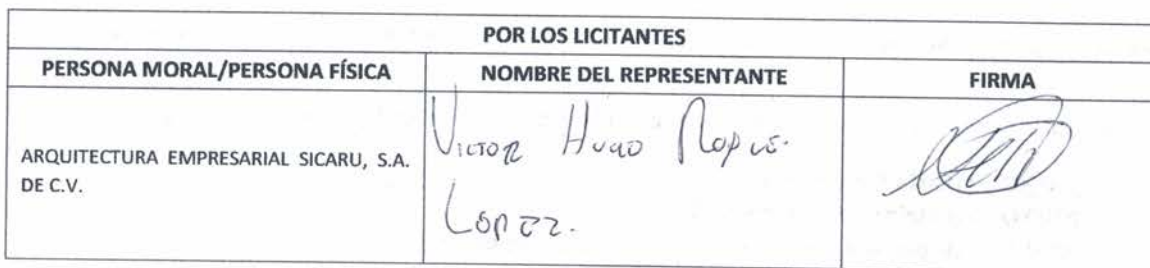 POR LOS LICITANTES
PERSONA MORAL/PERSONA FÍSICA NOMBRE DEL REPRESENTANTE FIRMA
ARQUITECTURA EMPRESARIAL SICARU, S.A.
DE C.V.
VICTOR HUGO
LOPEZ.